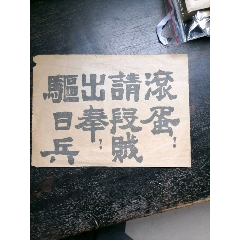 驅日兵
出奉!!
請段賊
滾蛋!!